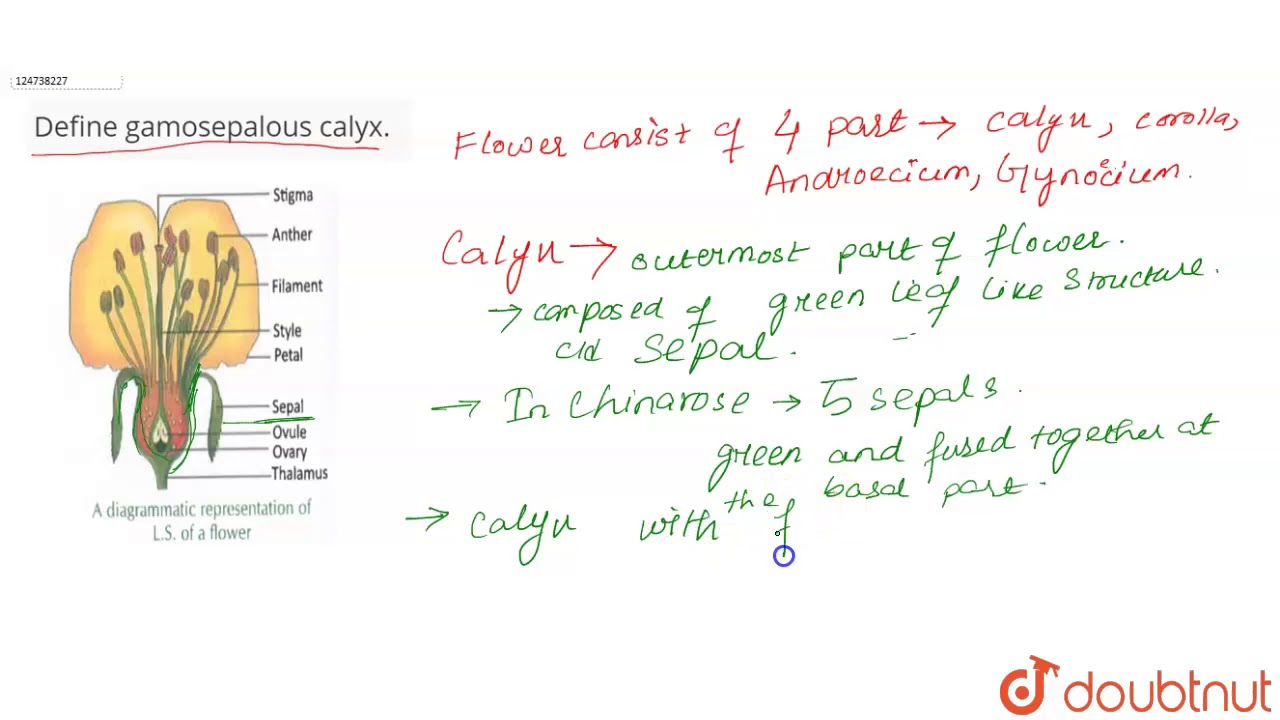 124738227
Define gamosepalous calyx.
Flower consist of 4 part → calyx, corolla,
Androecium, Gynoecium.
Stigma
Anther
Filament
Style
Petal
Sepal
Ovule
Ovary
Thalamus
A diagrammatic representation of
L.S. of a flower
Calyx → outermost part of flower.
→ composed of green leaf like structure.
c/d Sepal.
→ In Chinarose → 5 sepals.
green and fused together at
the basal part.
→ calyx with f
doubtnut